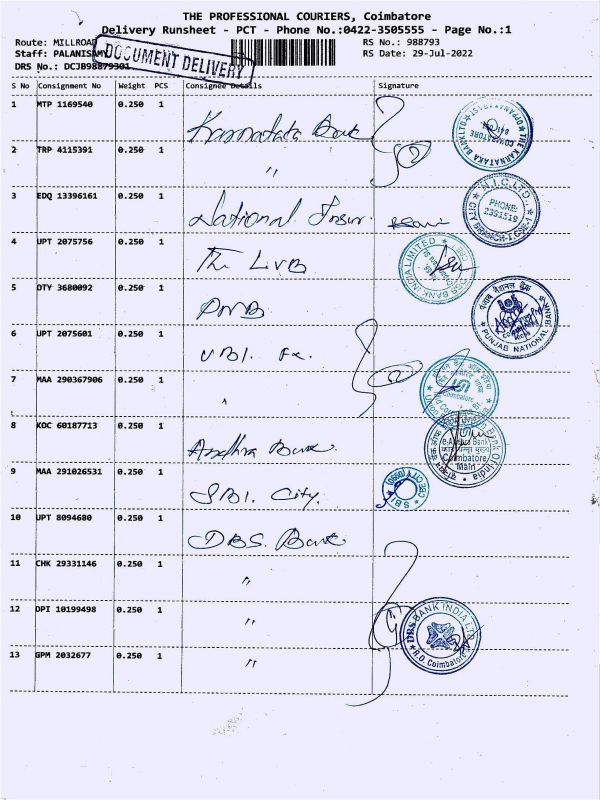 THE PROFESSIONAL COURIERS, Coimbatore
Delivery Runsheet - PCT - Phone No.:0422-3505555 - Page No.:1
Route: MILLROAD RS No.: 988793
Staff: PALANISAMY RS Date: 29-Jul-2022
DRS No.: DCJB98879301
DOCUMENT DELIVERY
S No Consignment No Weight PCS Consignee Details Signature
1 MTP 1169540 0.250 1 Karnataka Bank
THE KARNATAKA BANK LTD COIMBATORE
2 TRP 4115391 0.250 1 〃
3 EDQ 13396161 0.250 1 National Insur.
N.I.C.LTD., PHONE: 2391519 CITY BRANCH-I, CBE-1
4 UPT 2075756 0.250 1 The LVB
BANK INDIA LIMITED
5 OTY 3680092 0.250 1 PNB
पंजाब नैशनल बैंक PUNJAB NATIONAL BANK
6 UPT 2075601 0.250 1 UBI.
7 MAA 290367906 0.250 1 〃
Coimbatore
8 KOC 60187713 0.250 1 Andhra Bank
Union Bank Of India e-Andhra Bank Coimbatore Main
9 MAA 291026531 0.250 1 SBI. City.
SBI
10 UPT 8094680 0.250 1 DBS. Bank
11 CHK 29331146 0.250 1 〃
12 DPI 10199498 0.250 1 〃
DBS BANK INDIA LTD. R.O. Coimbatore
13 GPM 2032677 0.250 1 〃